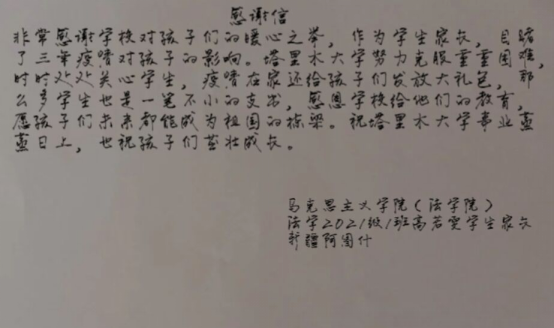 感谢信
非常感谢学校对孩子们的暖心之举，作为学生家长，目睹
了三年疫情对孩子的影响。塔里木大学努力克服重重困难，
时时处处关心学生，疫情在家还给孩子们发放大礼包，那
么多学生也是一笔不小的支出，感恩学校给他们的教育，
愿孩子们未来都能成为祖国的栋梁。祝塔里木大学事业蒸
蒸日上，也祝孩子们茁壮成长。
马克思主义学院（法学院）
法学2021级1班高若雯学生家长
新疆阿图什